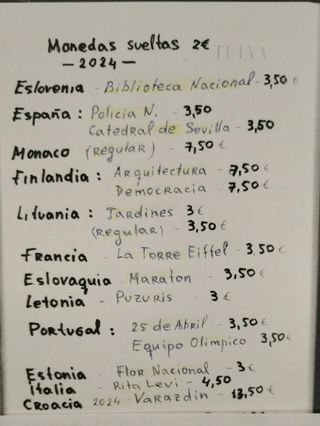 Monedas sueltas 2€
— 2024 —
Eslovenia - Biblioteca Nacional - 3,50 €
España : Policia N. - 3,50
Catedral de Sevilla - 3,50
Monaco (regular) - 7,50€
Finlandia : Arquitectura - 7,50€
Democracia - 7,50€
Lituania : Jardines 3 €
(Regular) - 3,50€
Francia - La Torre Eiffel - 3,50 €
Eslovaquia - Maraton - 3,50€
Letonia - Puzuris - 3 €
Portugal : 25 de Abril - 3,50€
Equipo Olimpico 3,50€
Estonia - Flor Nacional - 3€
Italia - Rita Levi - 4,50
Croacia 2024 - Varazdin - 13,50€